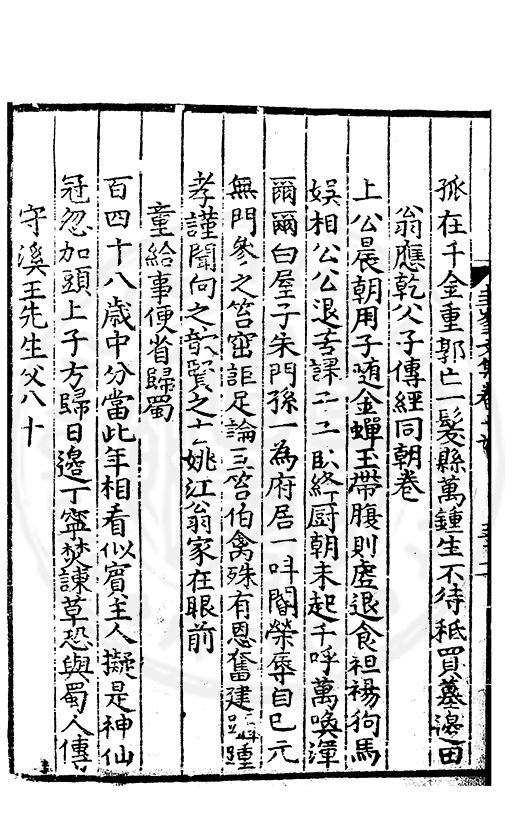 孤在千金重郭亡一髮縣萬鍾生不待秪買墓邊田
翁應乾父子傳經同朝卷
上公晨朝用子隨金蟬玉帶腹則虛退食袒裼狗馬
娱相公公退苦課子子卧終厨朝未起千呼萬喚渾
爾爾白屋子朱門孫一為府居一叫閽榮辱自已元
無門參之笞宻詎足論三笞伯禽殊有恩奮建踵
孝謹聞向之歆賢之姚江翁家在眼前
童給事便省歸蜀
百四十八歲中分當此年相看似賓主人擬是神仙
冠忽加頭上子方歸日邊丁寧焚諫草恐與蜀人傳
守溪王先生父八十